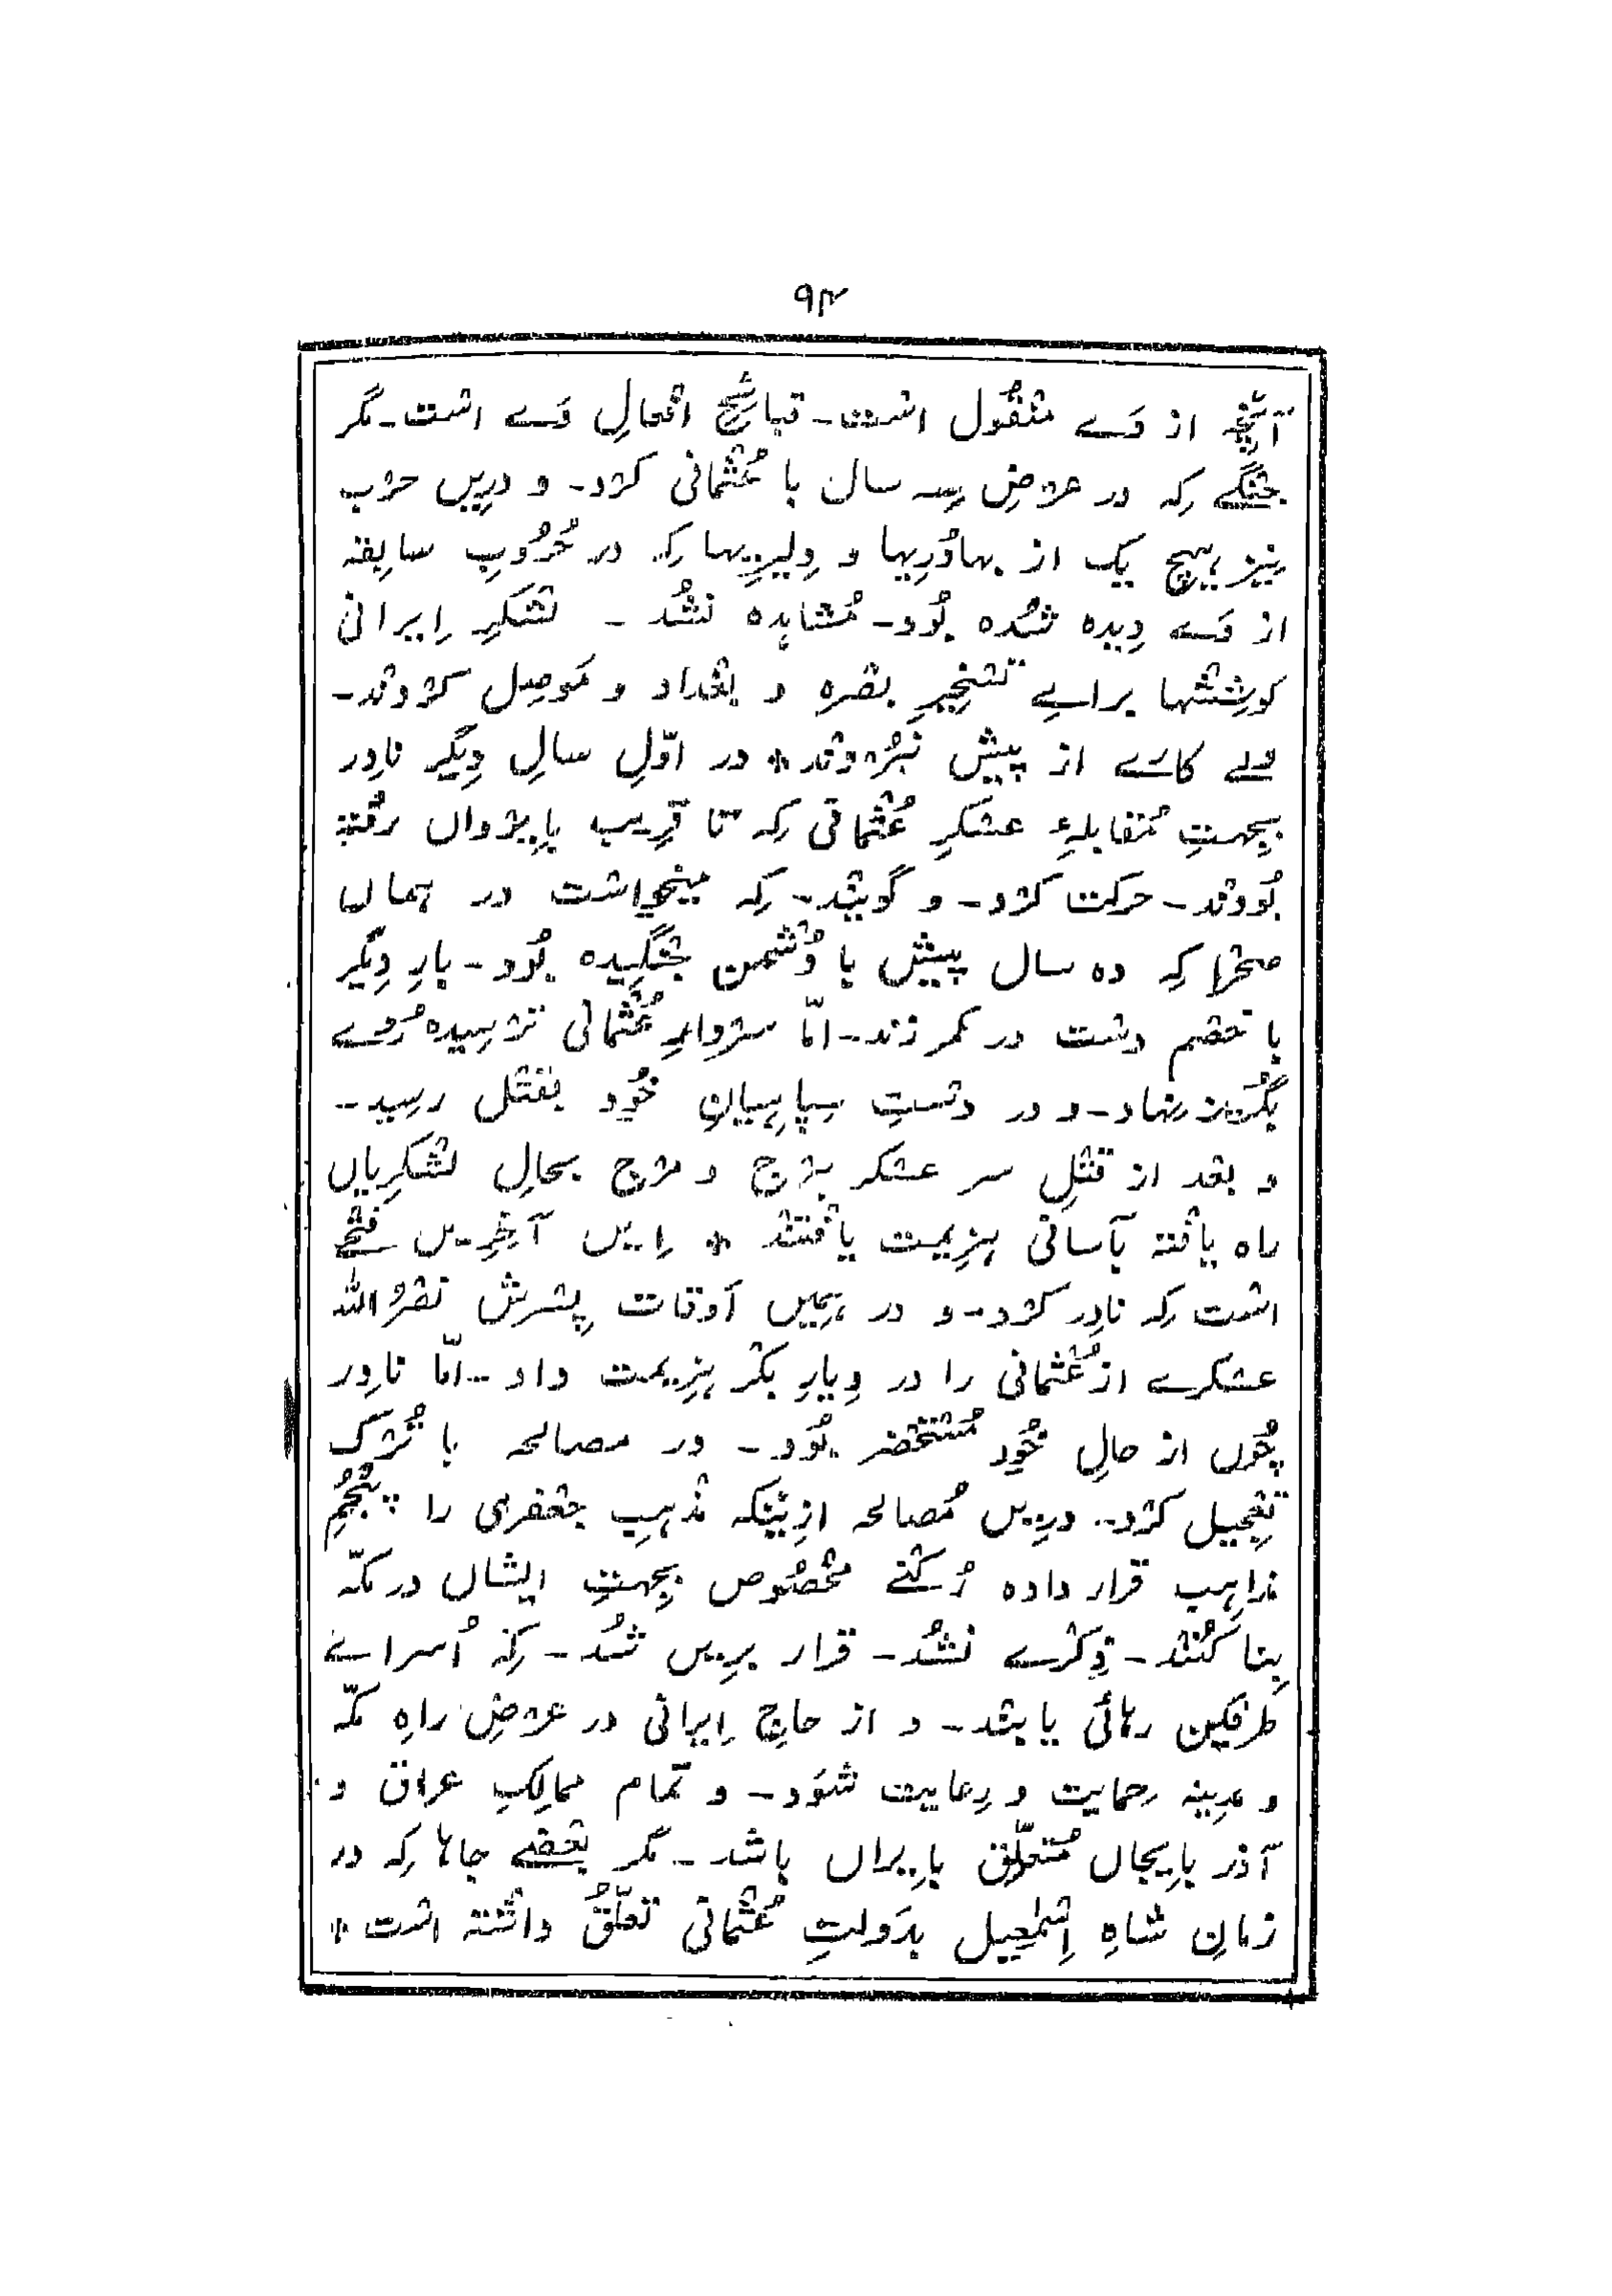 ۹۴
آنچہ از وَے منقُول است ـ قبائحِ افعالِ وَے است ـ مگر
جنگے کِہ در عرضِ سِہ سال با عُثمانی کرد ـ و درِیں حرب
نِیز ہِیچ یک از بہادُرِیہا و دِلیرِیہا کِہ در حُرُوبِ سابِقہ
از وَے دِیدہ شُدہ بُود ـ مُشاہدہ نشُد ـ لشکرِ اِیرانی
کوشِشہا براے تسخِیرِ بصرہ و بغداد و مَوصِل کردند ـ
ولے کارے از پیش نبُردند * در اوّلِ سالِ دِیگر نادِر
بجِہتِ مُقابلہءِ عسکرِ عُثمانی کِہ تا قرِیب بایرواں رفتہ
بُودند ـ حرکت کرد ـ و گویند ـ کِہ میخواست در ہماں
صحرا کِہ دہ سال پیش با دُشمن جنگِیدہ بُود ـ بارِ دِیگر
با خصم دست در کمر زند ـ امّا سردارِ عُثمانی ترسِیدہ رُوے
بگُریز نہاد ـ و در دستِ سِپاہِیانِ خُود بقتل رسِید ـ
و بعد از قتلِ سر عسکر ہرج و مرج بحالِ لشکرِیاں
راہ یافتہ بآسانی ہزِیمت یافتند * اِیں آخرِیں فتحے
است کِہ نادِر کرد ـ و در ہمِیں اَوقات پِسرش نصرُ اللہ
عسکرے از عُثمانی را در دِیارِ بکر ہزِیمت داد ـ امّا نادِر
چُوں از حالِ خُود مُستحضر بُود ـ در مصالحہ با تُرک
تعجِیل کرد ـ درِیں مُصالحہ ازِینکہ مذہبِ جعفری را پنجُمِ
مذاہِب قرار دادہ رُکنے مخصُوص بجِہتِ ایشاں در مکّہ
بِنا کُنند ـ ذِکرے نشُد ـ قرار برِیں شُد ـ کِہ اُسراے
طرفَین رہائی یابند ـ و از حاجِ اِیرانی در عرضِ راہِ مکّہ
و مدِینہ حِمایت و رِعایت شوَد ـ و تمام ممالِکِ عراق و
آذر بایجاں مُتعلِّق بایراں باشد ـ مگر بعضے جاہا کِہ در
زمانِ شاہِ اِسمٰعِیل بدَولتِ عُثمانی تعلُّق داشتہ است *